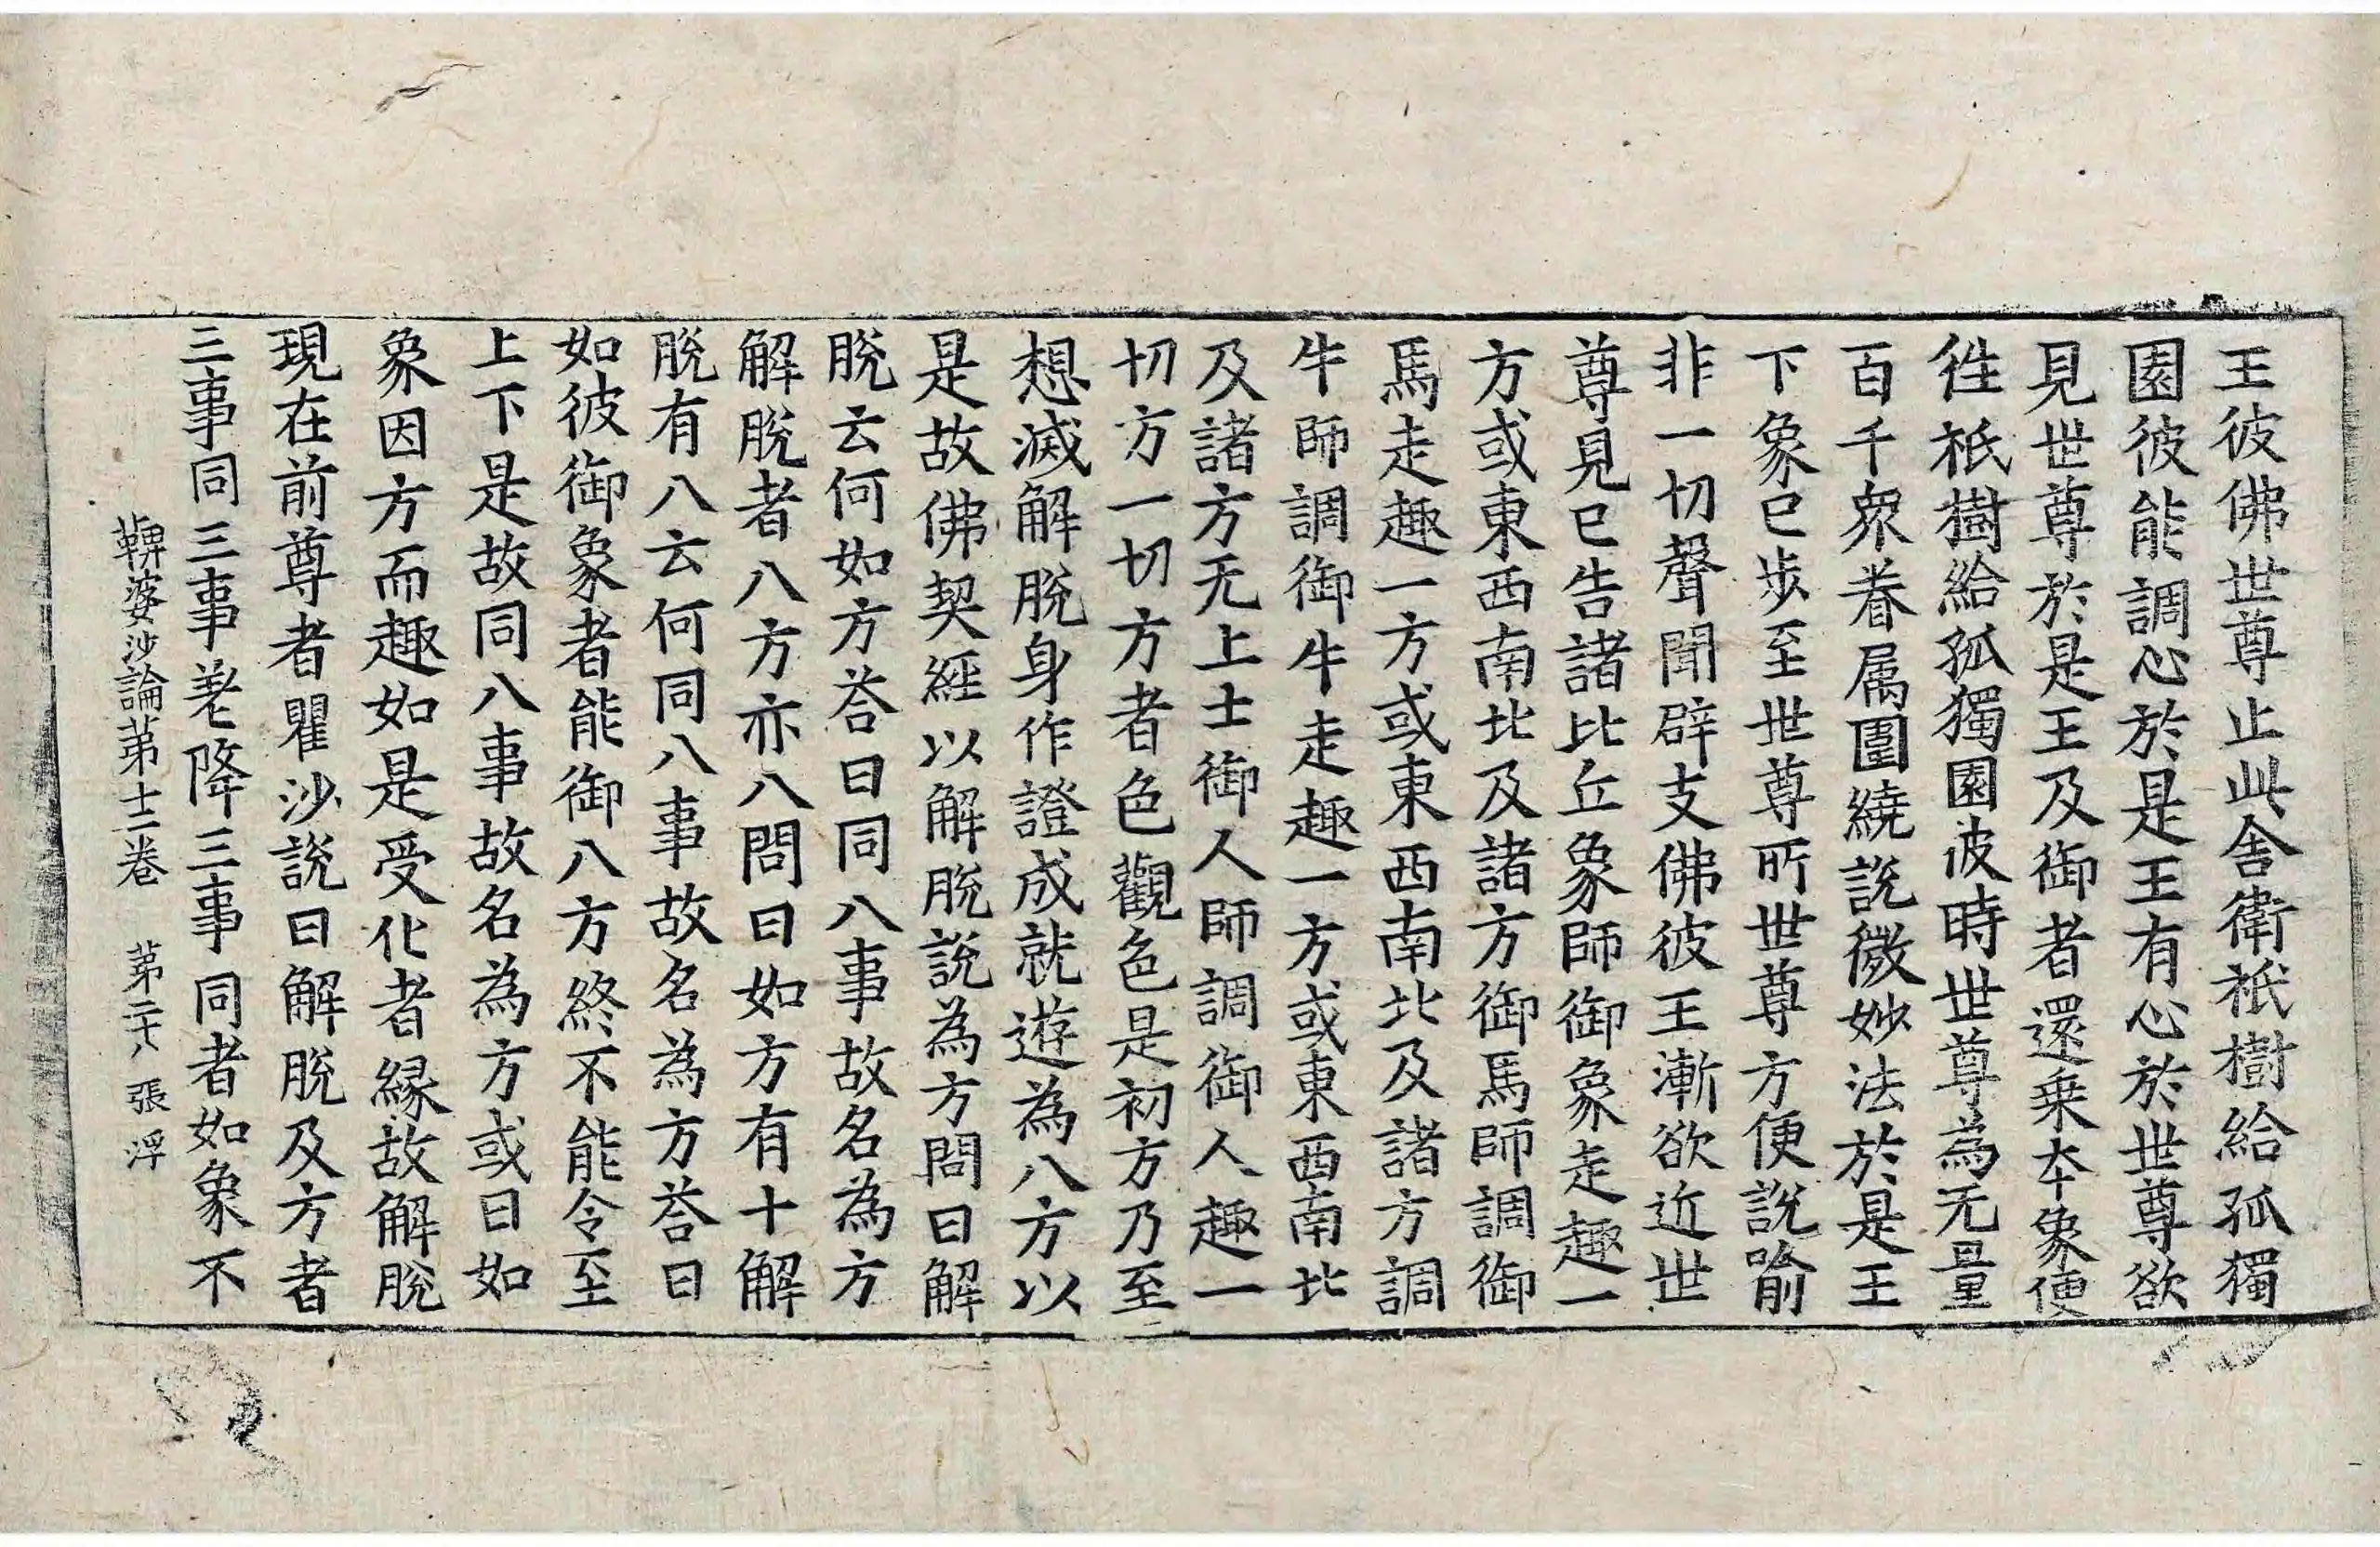 王彼佛世尊止此舍衛祇樹給孤獨
園彼能調心於是王有心於世尊欲
見世尊於是王及御者還乗夲象便
徃祇樹給孤獨園彼時世尊為无量
百千衆眷属圍繞說微妙法於是王
下象已步至世尊所世尊方便說喻
非一切聲聞辟支佛彼王漸欲近世
尊見已告諸比丘象師御象走趣一
方或東西南北及諸方御馬師調御
馬走趣一方或東西南北及諸方調
牛師調御牛走趣一方或東西南北
及諸方无上士御人師調御人趣一
切方一切方者色觀色是初方乃至
想滅解脫身作證成就遊為八方以
是故佛契經以解脫說為方問曰解
脫云何如方荅曰同八事故名為方
解脫者八方亦八問曰如方有十解
脫有八云何同八事故名為方荅曰
如彼御象者能御八方終不能令至
上下是故同八事故名為方或曰如
象因方而趣如是受化者縁故解脫
現在前尊者瞿沙說曰解脫及方者
三事同三事差降三事同者如象不
鞞婆沙論第十二卷 第二十八張 浮